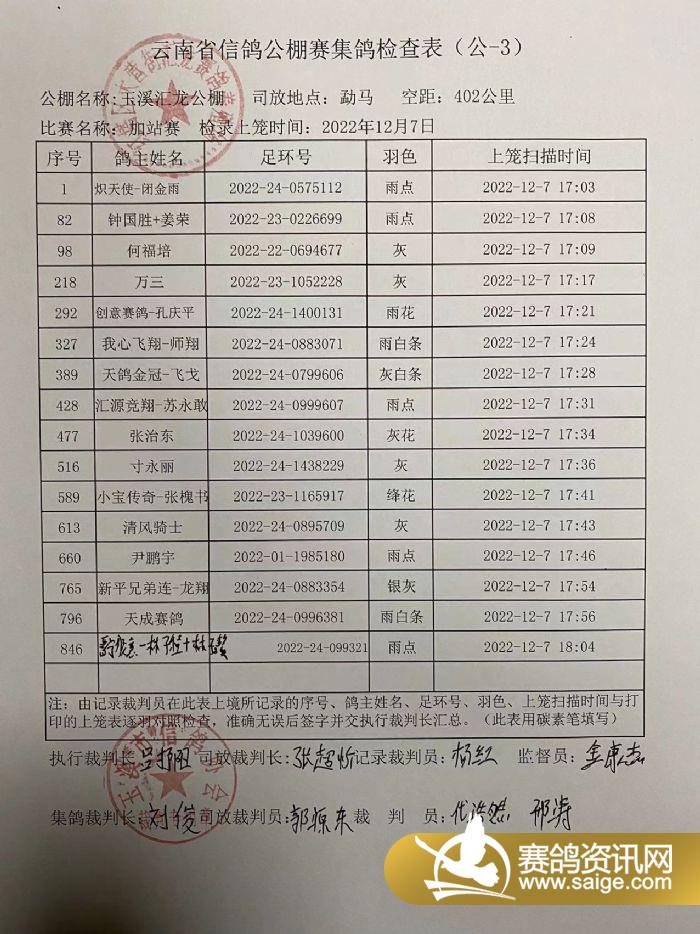 云南省信鸽公棚赛集鸽检查表（公-3）
公棚名称:玉溪汇龙公棚 司放地点：勐马 空距：402公里
比赛名称：加站赛 检录上笼时间：2022年12月7日
序号 鸽主姓名 足环号 羽色 上笼扫描时间
1 炽天使-闭金雨 2022-24-0575112 雨点 2022-12-7 17:03
82 钟国胜+姜荣 2022-23-0226699 雨点 2022-12-7 17:08
98 何福培 2022-22-0694677 灰 2022-12-7 17:09
218 万三 2022-23-1052228 灰 2022-12-7 17:17
292 创意赛鸽-孔庆平 2022-24-1400131 雨花 2022-12-7 17:21
327 我心飞翔-师翔 2022-24-0883071 雨白条 2022-12-7 17:24
389 天鸽金冠-飞戈 2022-24-0799606 灰白条 2022-12-7 17:28
428 汇源竞翔-苏永敢 2022-24-0999607 雨点 2022-12-7 17:31
477 张治东 2022-24-1039600 灰花 2022-12-7 17:34
516 寸永丽 2022-24-1438229 灰 2022-12-7 17:36
589 小宝传奇-张槐书 2022-23-1165917 绛花 2022-12-7 17:41
613 清风骑士 2022-24-0895709 灰 2022-12-7 17:43
660 尹鹏宇 2022-01-1985180 雨点 2022-12-7 17:46
765 新平兄弟连-龙翔 2022-24-0883354 银灰 2022-12-7 17:54
796 天成赛鸽 2022-24-0996381 雨白条 2022-12-7 17:56
846 2022-24-099321 雨点 2022-12-7 18:04
注：由记录裁判员在此表上境所记录的序号、鸽主姓名、足环号、羽色、上笼扫描时间与打
印的上笼表逐羽对照检查，准确无误后签字并交执行裁判长汇总。（此表用碳素笔填写）
执行裁判长 司放裁判长:张超怡 记录裁判员：杨红 监督员：
集鸽裁判长:刘俊 司放裁判员:郭源东 裁 判 员： 邢涛
赛鸽资讯网
www.saige.com